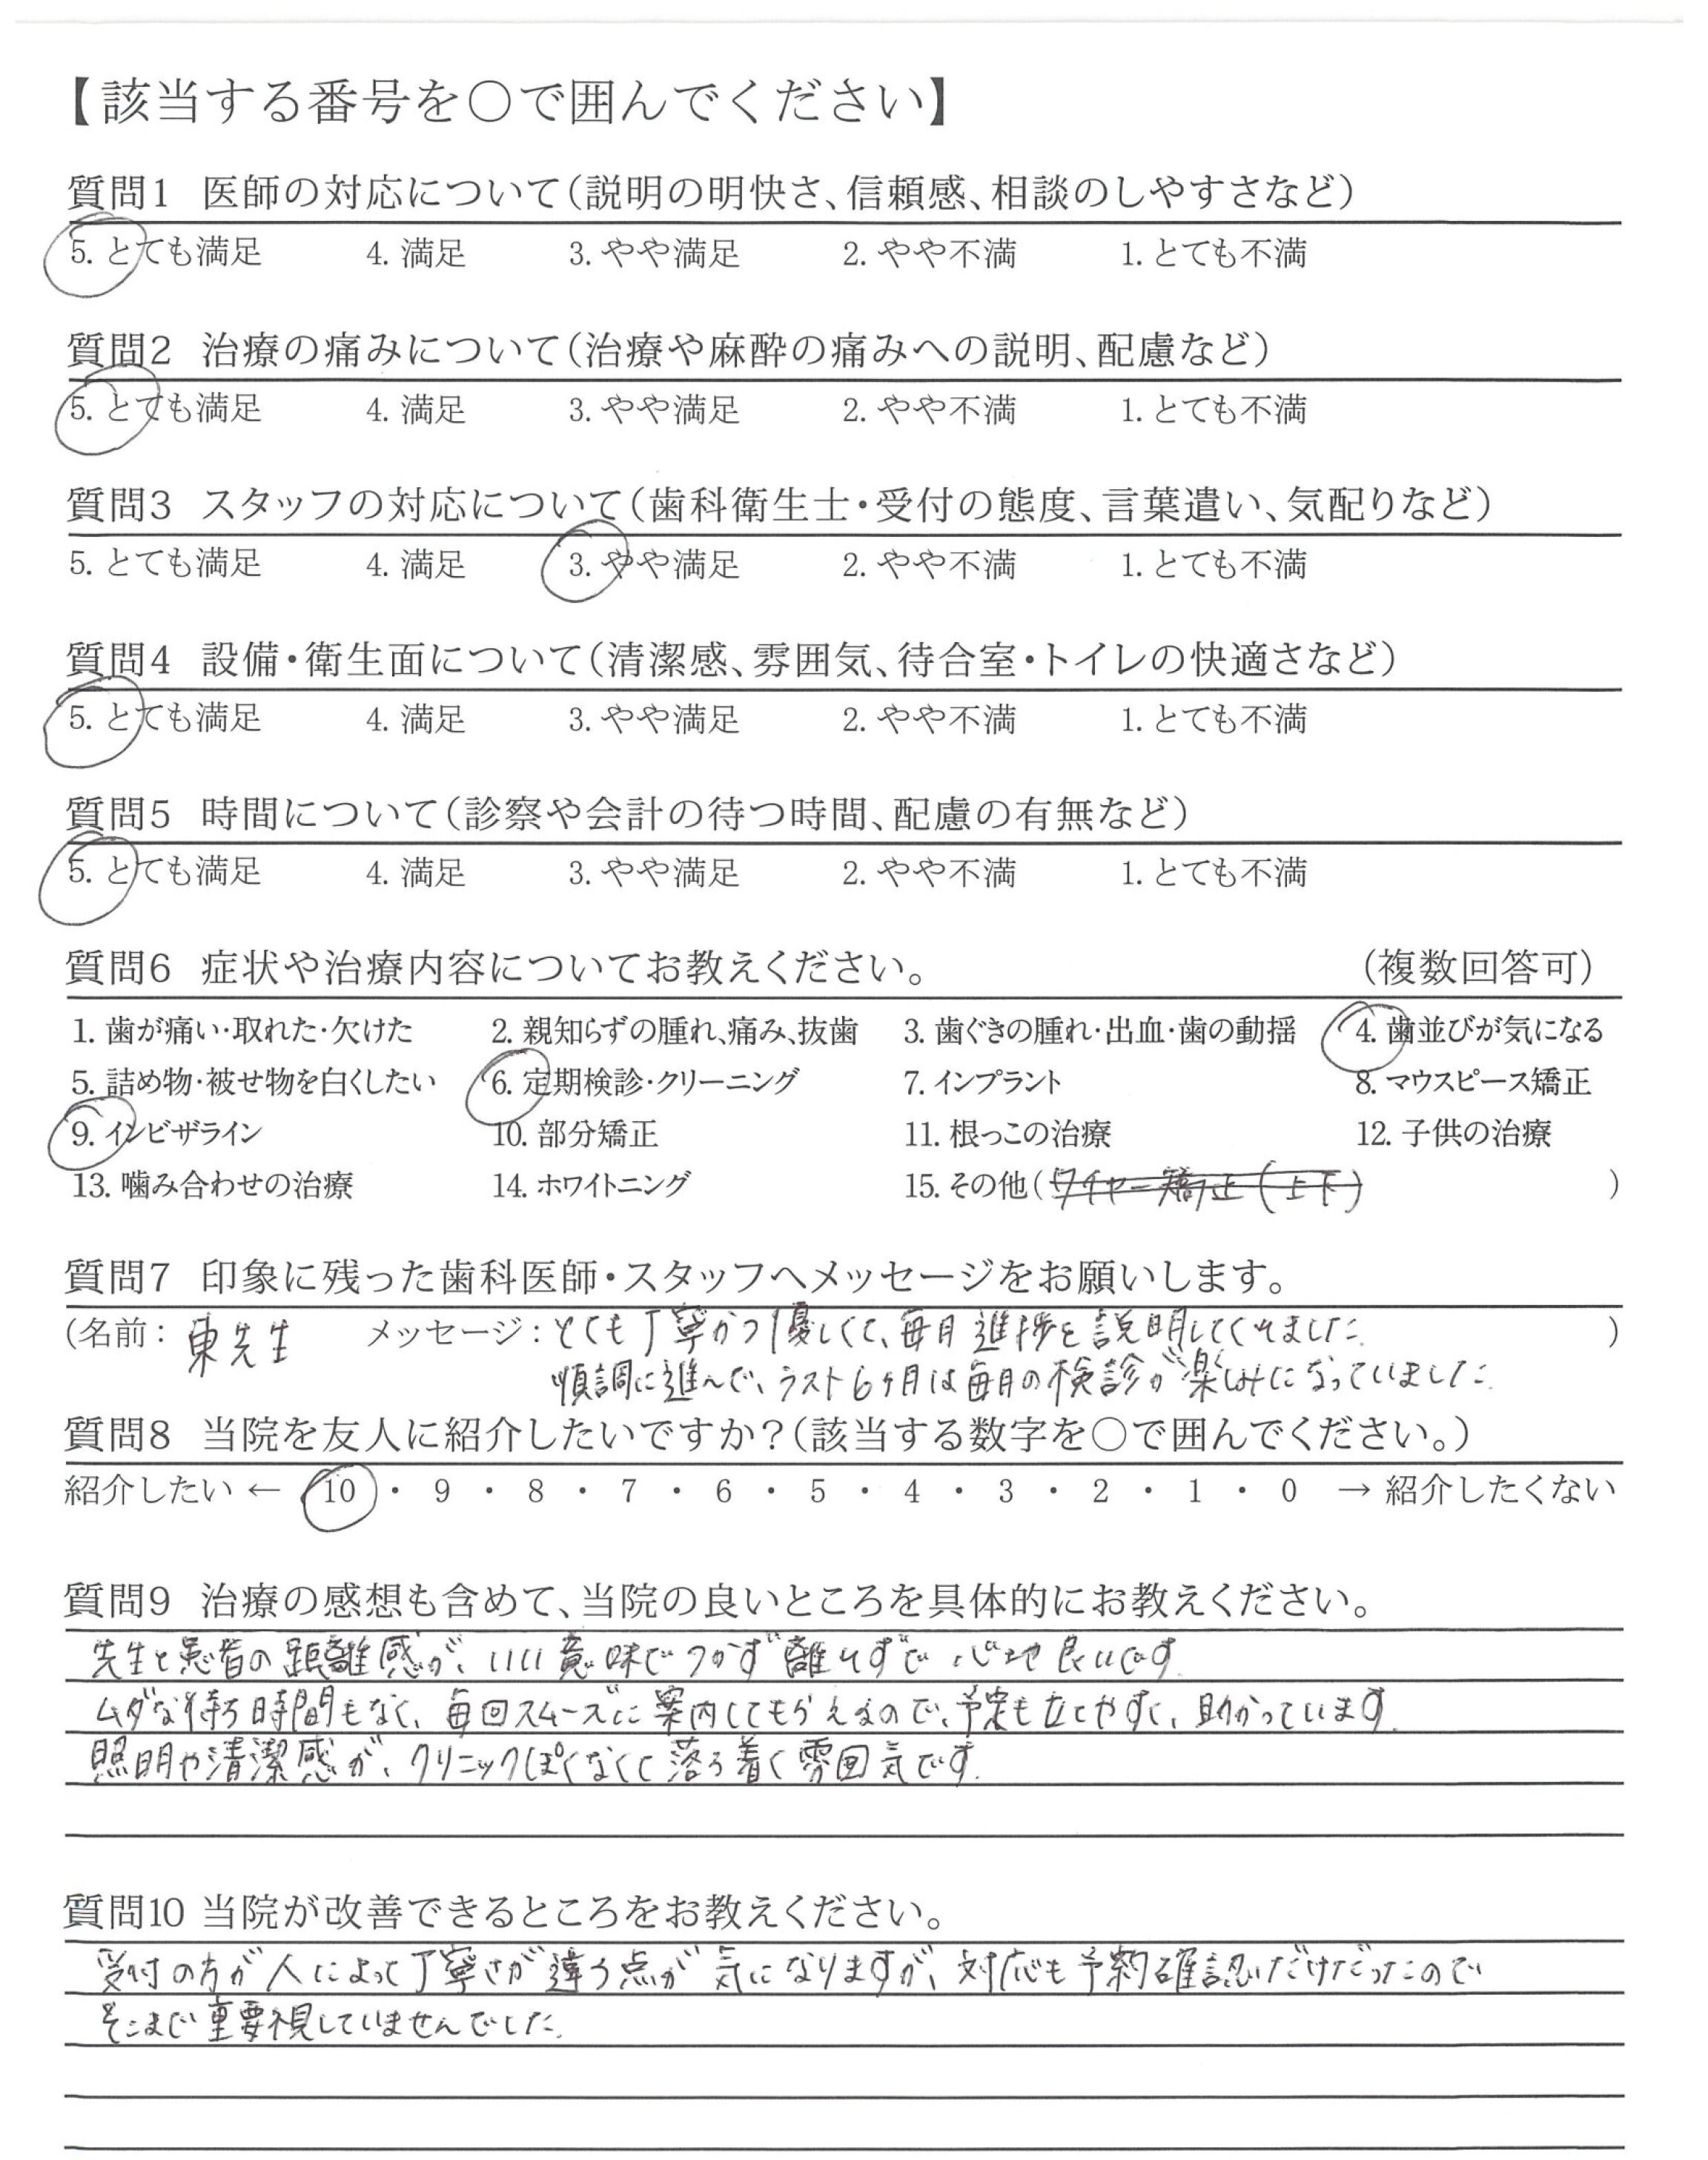 【該当する番号を○で囲んでください】
質問1 医師の対応について(説明の明快さ、信頼感、相談のしやすさなど)
5. とても満足 4. 満足 3. やや満足 2. やや不満 1. とても不満
質問2 治療の痛みについて(治療や麻酔の痛みへの説明、配慮など)
5. とても満足 4. 満足 3. やや満足 2. やや不満 1. とても不満
質問3 スタッフの対応について(歯科衛生士・受付の態度、言葉遣い、気配りなど)
5. とても満足 4. 満足 3. やや満足 2. やや不満 1. とても不満
質問4 設備・衛生面について(清潔感、雰囲気、待合室・トイレの快適さなど)
5. とても満足 4. 満足 3. やや満足 2. やや不満 1. とても不満
質問5 時間について(診察や会計の待つ時間、配慮の有無など)
5. とても満足 4. 満足 3. やや満足 2. やや不満 1. とても不満
質問6 症状や治療内容についてお教えください。 (複数回答可)
1. 歯が痛い・取れた・欠けた 2. 親知らずの腫れ、痛み、抜歯 3. 歯ぐきの腫れ・出血・歯の動揺 4. 歯並びが気になる
5. 詰め物・被せ物を白くしたい 6. 定期検診・クリーニング 7. インプラント 8. マウスピース矯正
9. インビザライン 10. 部分矯正 11. 根っこの治療 12. 子供の治療
13. 噛み合わせの治療 14. ホワイトニング 15. その他(ワイヤー矯正(上下) )
質問7 印象に残った歯科医師・スタッフへメッセージをお願いします。
(名前: 東先生 メッセージ: とても丁寧かつ優しくて、毎月進捗を説明してくれました。 )
順調に進んで、ラスト6ヶ月は毎月の検診が楽しみになっていました。
質問8 当院を友人に紹介したいですか?(該当する数字を○で囲んでください。)
紹介したい ← 10 ・ 9 ・ 8 ・ 7 ・ 6 ・ 5 ・ 4 ・ 3 ・ 2 ・ 1 ・ 0 → 紹介したくない
質問9 治療の感想も含めて、当院の良いところを具体的にお教えください。
先生と患者の距離感が、いい意味でつかず離れずで心地良いです。
ムダな待ち時間もなく、毎回スムーズに案内してもらえるので、予定も立てやすく、助かっています。
照明や清潔感が、クリニックぽくなくて落ち着く雰囲気です。
質問10 当院が改善できるところをお教えください。
受付の方が人によって丁寧さが違う点が気になりますが、対応も予約確認だけだったので
そこまで重要視していませんでした。